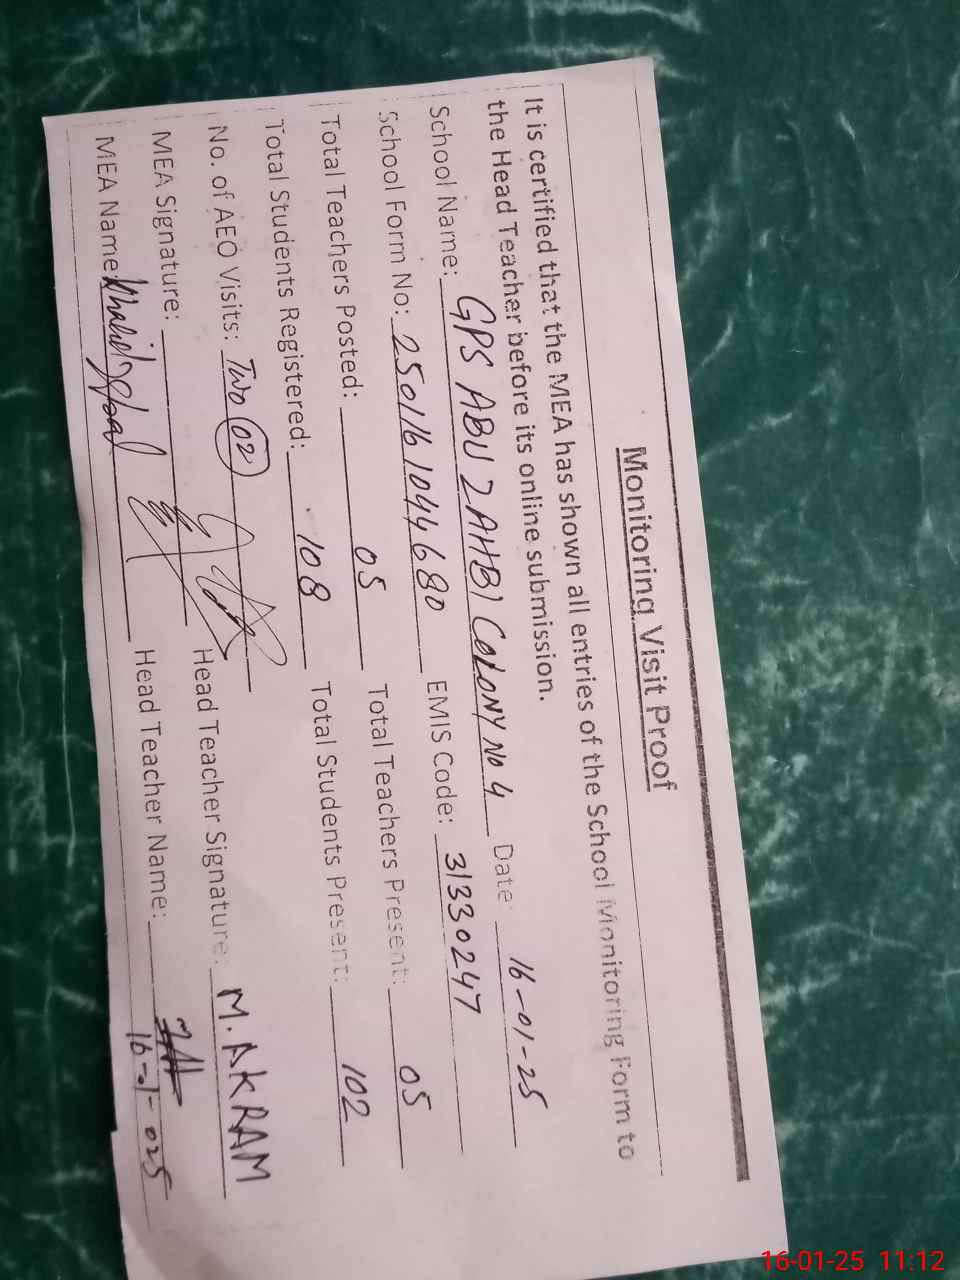 Monitoring Visit Proof
It is certified that the MEA has shown all entries of the School Monitoring Form to
the Head Teacher before its online submission.
School Name: GPS ABU ZAHBI COLONY No 4 Date: 16-01-25
School Form No: 250116 1044680 EMIS Code: 31330247
Total Teachers Posted: 05 Total Teachers Present: 05
Total Students Registered: 108 Total Students Present: 102
No. of AEO Visits: Two 02
MEA Signature: Head Teacher Signature: M. AKRAM
MEA Name: Khalid Iqbal Head Teacher Name:
16-01-025
16-01-25 11:12